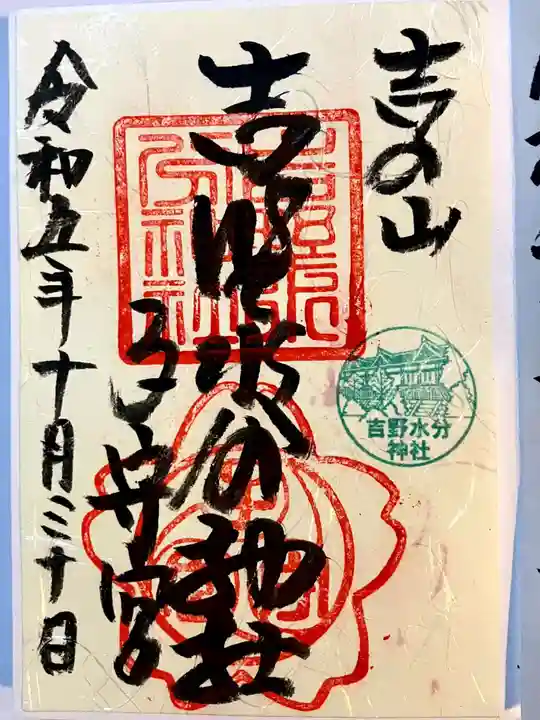 吉の山
吉野水分神社
子守宮
令和五年十月三十日
吉野水分
神社